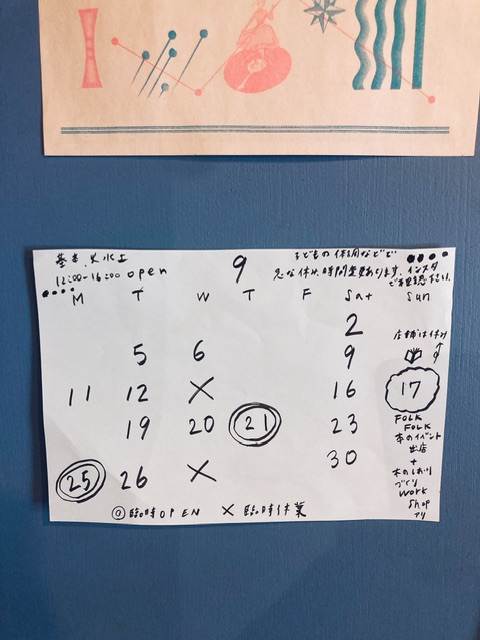 基本 火水土
12:00-16:00 open
9
子どもの体調などで
急な休み、時間変更あります。インスタ
ご確認下さい。
M T W T F Sat Sun
2
店舗は休み
5 6 9
11 12 × 16 17
19 20 21 23
FOLK
FOLK
本のイベント
出店
+
30
本のしおり
づくり
work
shop
アリ
25 26 ×
◎臨時OPEN ×臨時休業